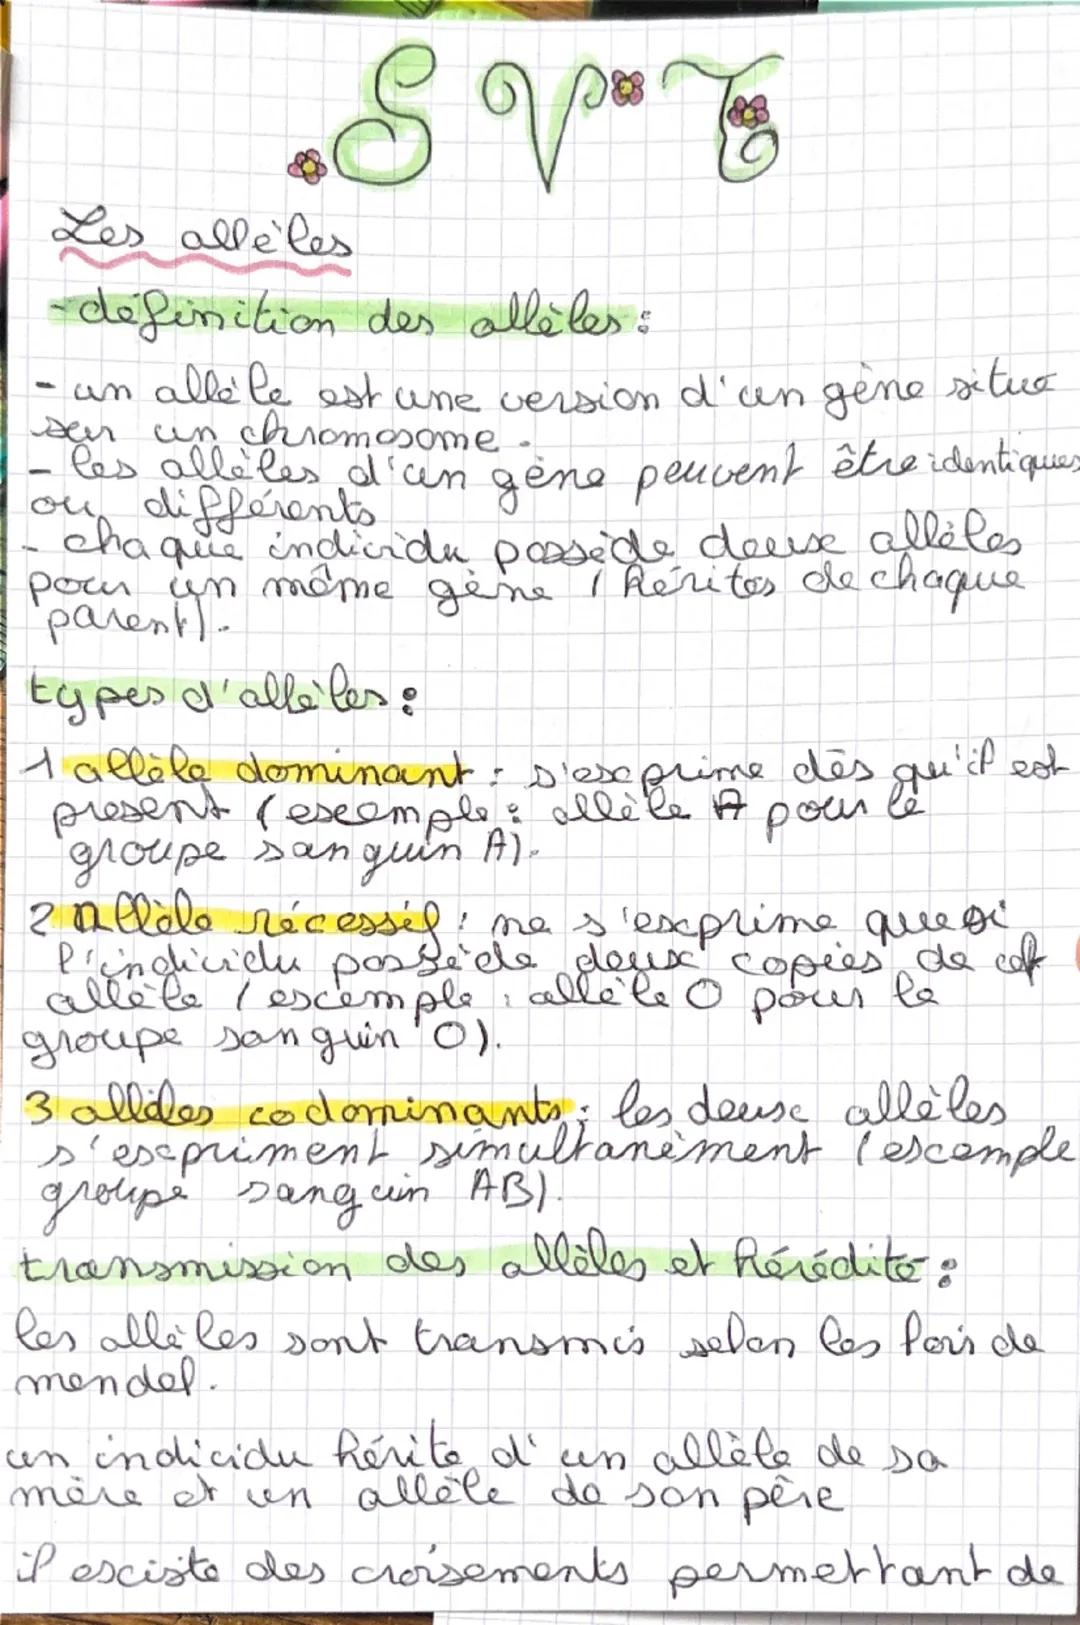 SVT
Les allèles
- définition des allèles :
- un allèle est une version d'un gène situé
sur un chromosome.
- les allèles d'un gène peuvent être identiques
ou différents
- chaque individu possède deux allèles
pour un même gène (hérités de chaque
parent).
types d'allèles :
1 allèle dominant : s'exprime dès qu'il est
present (exemple : allèle A pour le
groupe sanguin A).
2 allèle récessif : ne s'exprime que si
l'individu possède deux copies de cet
allèle (exemple : allèle O pour le
groupe sanguin O).
3 allèles codominants : les deux allèles
s'expriment simultanément (exemple
groupe sanguin AB).
transmission des allèles et hérédité :
les allèles sont transmis selon les lois de
mendel.
un individu hérite d'un allèle de sa
mère et un allèle de son père
il existe des croisements permettant de